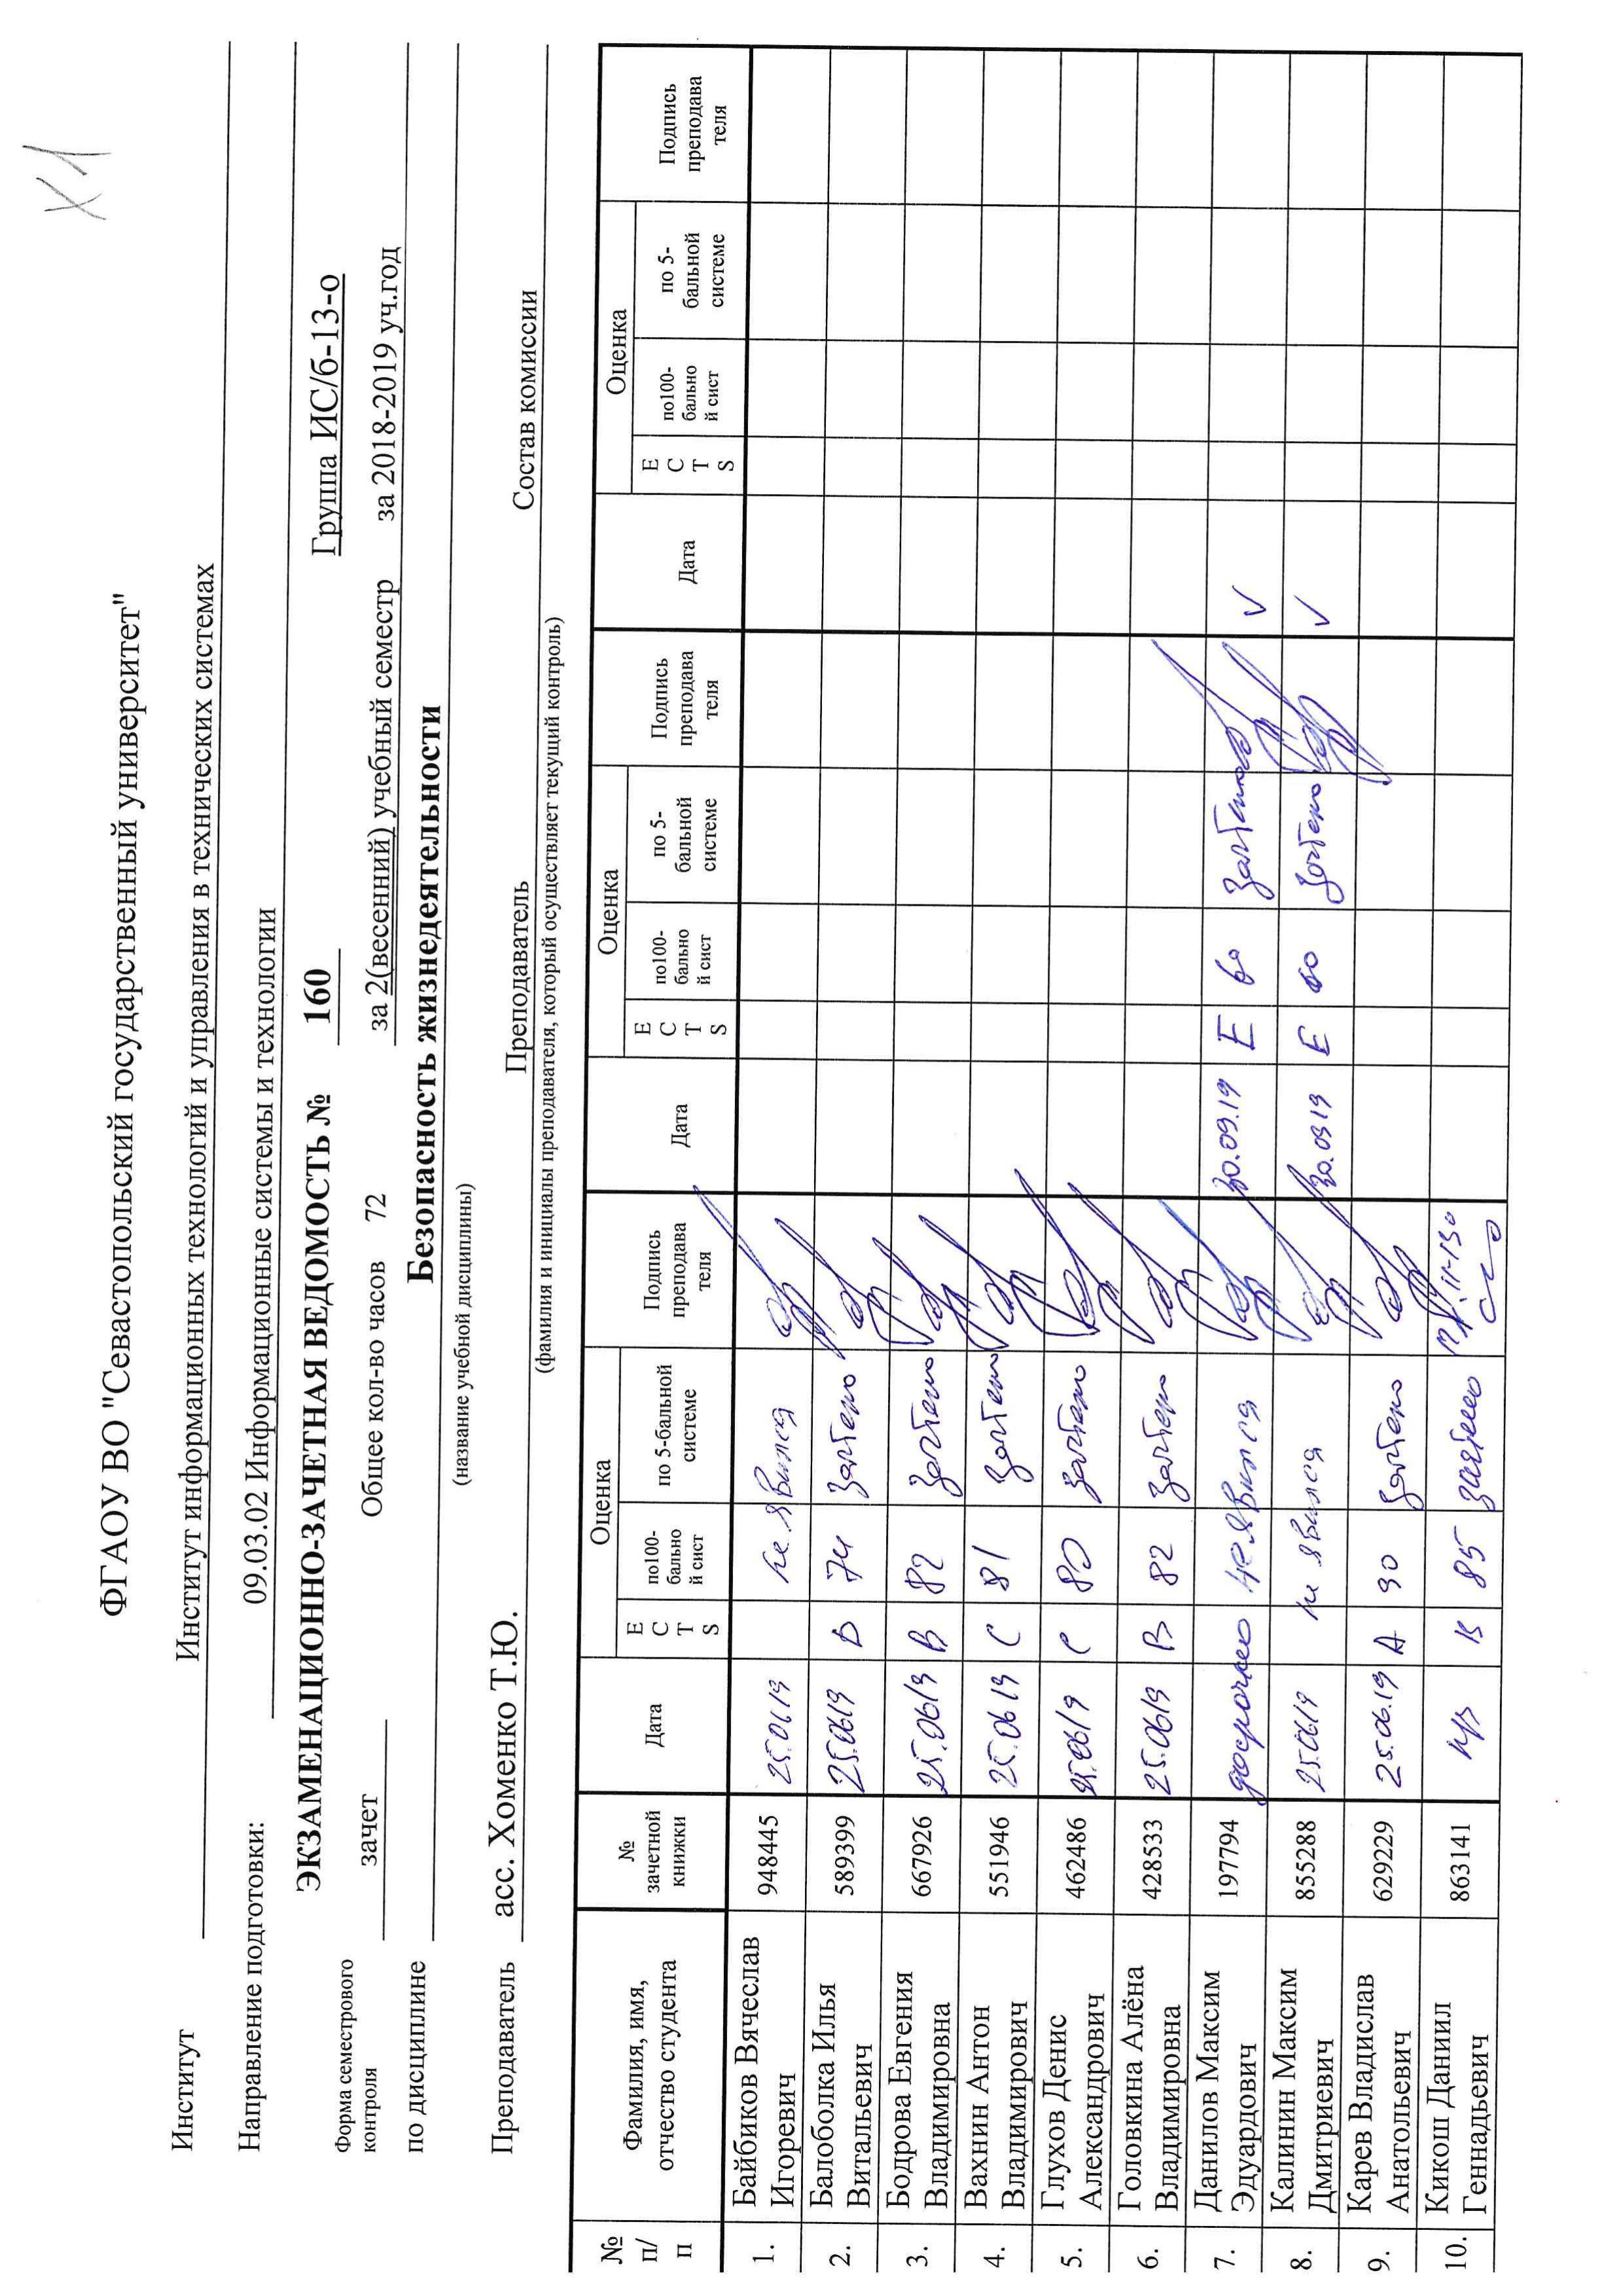 X1
ФГАОУ ВО "Севастопольский государственный университет"
Институт Институт информационных технологий и управления в технических системах
Направление подготовки: 09.03.02 Информационные системы и технологии
ЭКЗАМЕНАЦИОННО-ЗАЧЕТНАЯ ВЕДОМОСТЬ № 160 Группа ИС/б-13-о
Форма семестрового
контроля зачет Общее кол-во часов 72 за 2(весенний) учебный семестр за 2018-2019 уч.год
по дисциплине Безопасность жизнедеятельности
(название учебной дисциплины)
Преподаватель асс. Хоменко Т.Ю. Преподаватель Состав комиссии
(фамилия и инициалы преподавателя, который осуществляет текущий контроль)
№ п/п Фамилия, имя, отчество студента № зачетной книжки Дата Оценка ECTS по100-бально й сист по 5-бальной системе Подпись преподава теля Дата Оценка ECTS по100-бально й сист по 5-бальной системе Подпись преподава теля Дата Оценка ECTS по100-бально й сист по 5-бальной системе Подпись преподава теля
1. Байбиков Вячеслав
Игоревич 948445 25.06/19 не явился
2. Балоболка Илья
Витальевич 589399 25.06/19 D 74 Зачтено
3. Бодрова Евгения
Владимировна 667926 25.06/19 B 82 Зачтено
4. Вахнин Антон
Владимирович 551946 25.06 19 C 81 Зачтено
5. Глухов Денис
Александрович 462486 25.06/9 C 80 зачтено
6. Головкина Алёна
Владимировна 428533 25.06/9 B 82 зачтено
7. Данилов Максим
Эдуардович 197794 досрочно не явился 30.09.19 E 60 Зачтено ✓
8. Калинин Максим
Дмитриевич 855288 25.06/9 не явился 30.0919 E 60 Зачтено ✓
9. Карев Владислав
Анатольевич 629229 25.06.19 A 90 Зачтено
10. Кикош Даниил
Геннадьевич 863141 B 85 зачтено